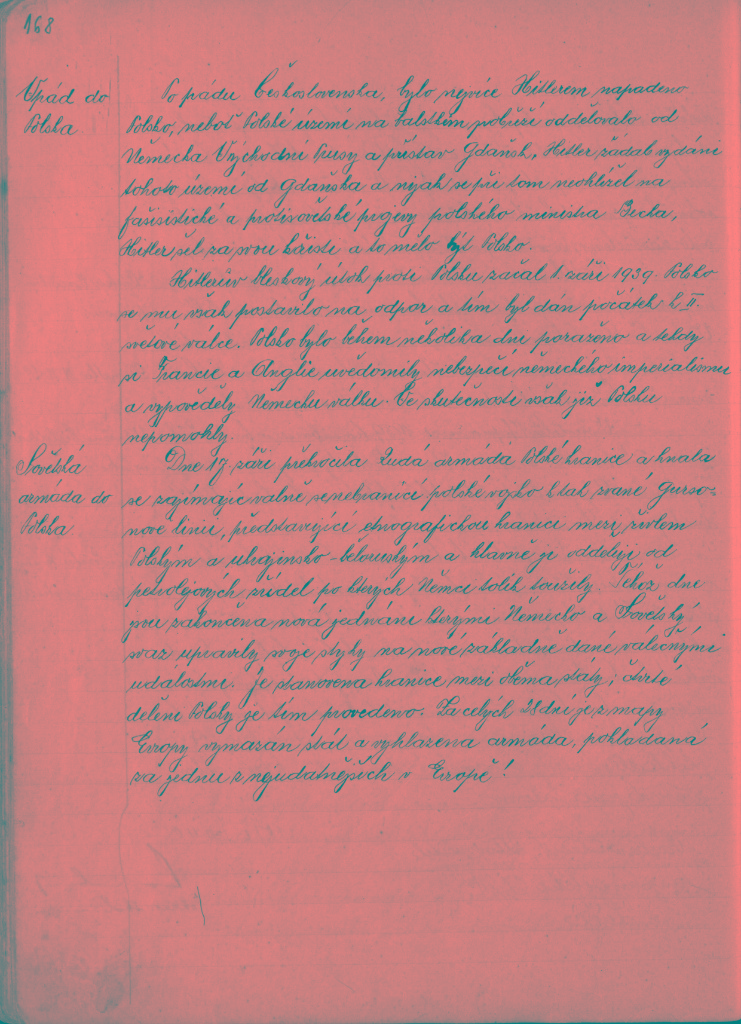 168
Vpád do
Polska
Po pádu Československa, bylo nejvíce Hitlerem napadeno
Polsko, neboť Polské území na baltském pobřeží oddělovalo od
Německa Východní Prusy a přístav Gdaňsk, Hitler žádal vydání
tohoto území od Gdaňska a nijak se při tom neohlížel na
fašisistické a protisovětské projevy polského ministra Becka,
Hitler šel za svou kořistí a to mělo být Polsko.
Hitlerův bleskový útok proti Polsku začal 1. září 1939. Polsko
se mu však postavilo na odpor a tím byl dán počátek k II.
světové válce. Polsko bylo během několika dní poraženo a tehdy
si Francie a Anglie uvědomily nebezpečí německého imperialismu
a vypověděly Německu válku. Ve skutečnosti však již Polsku
nepomohly.
Sovětská
armáda do
Polska
Dne 17. září překročila Rudá armáda Polské hranice a hnala
se zajímajíc valně se nebránící polské vojsko k tak zvané Curso-
nově linii, představující etnografickou hranici mezi živlem
Polským a ukrajinsko-běloruským a hlavně je oddělují od
petrolejových zřídel po kterých Němci tolik toužily. Téhož dne
jsou zakončena nová jednání kterými Německo a Sovětský
svaz upravily svoje styky na nové základně dané válečnými
událostmi. Je stanovena hranice mezi oběma státy; čtvrté
dělení Polsky je tím provedeno. Za celých 28 dní je z mapy
Evropy vymazán stát a vyhlazena armáda, pokládaná
za jednu z nejudatnějších v Evropě!